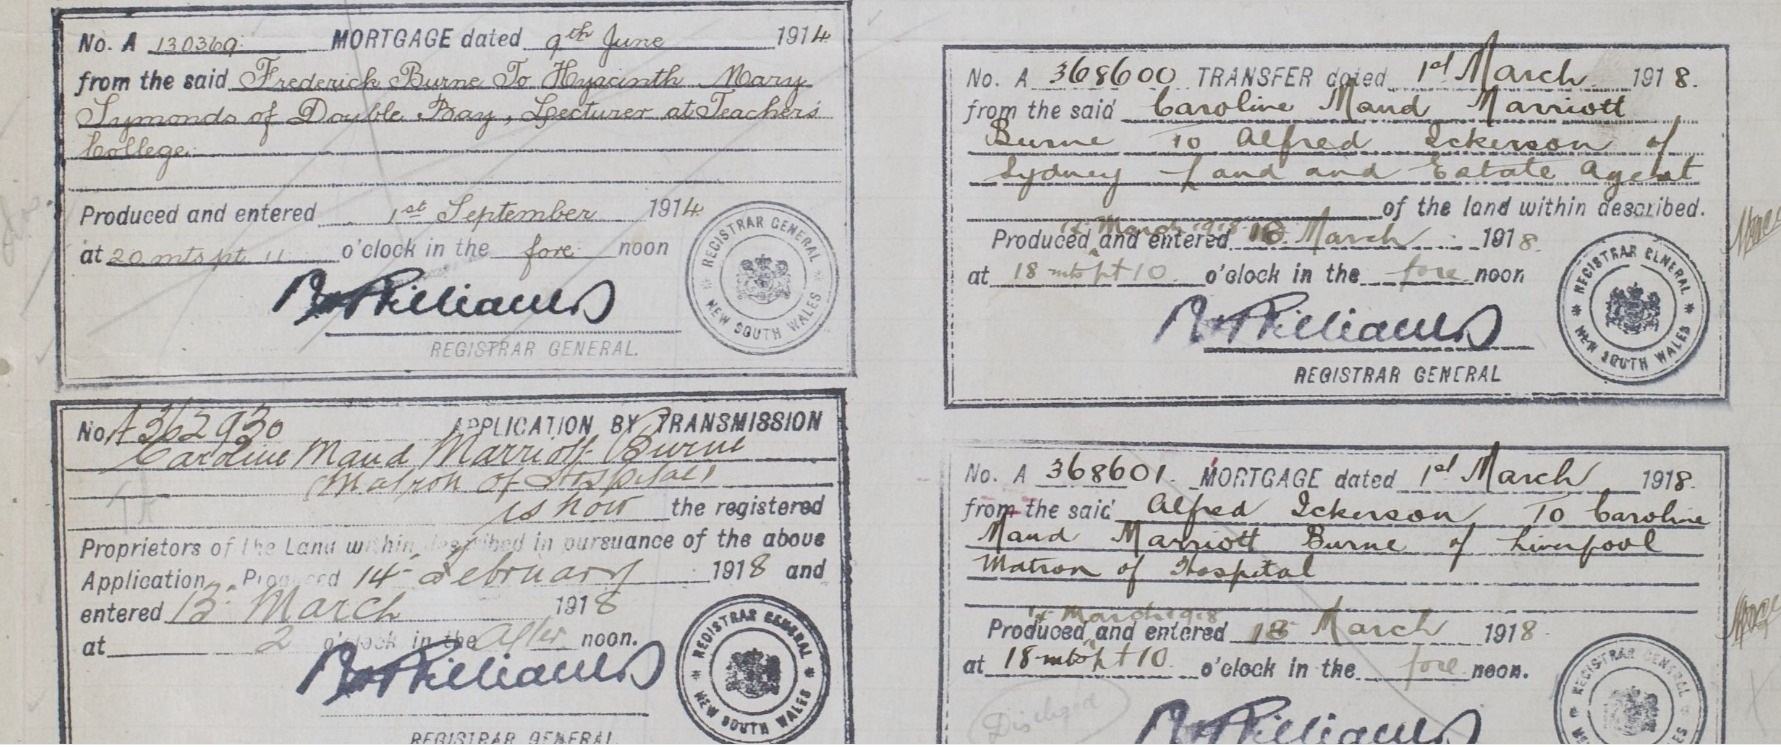 No. A 130369 MORTGAGE dated 9th June 1914
from the said Frederick Burne To Hyacinth Mary
Symonds of Double Bay, Lecturer at Teachers
College
Produced and entered 1st September 1914
at 20 mts pt 11 o'clock in the fore noon
REGISTRAR GENERAL.
REGISTRAR GENERAL
NEW SOUTH WALES
No. A362930 APPLICATION BY TRANSMISSION
Caroline Maud Marriott Burne
Matron of Hospital
is now the registered
Proprietors of the Land within described in pursuance of the above
Application Produced 14 February 1918 and
entered 13 March 1918
at 2 o'clock in the after noon.
REGISTRAR GENERAL
NEW SOUTH WALES
REGISTRAR GENERAL
No. A 368600 TRANSFER dated 1st March 1918.
from the said Caroline Maud Marriott
Burne To Alfred Ickerson of
Sydney Land and Estate Agent
of the land within described.
March 1918
Produced and entered 13 March 1918
at 18 mts pt 10 o'clock in the fore noon
REGISTRAR GENERAL
REGISTRAR GENERAL
NEW SOUTH WALES
No. A 368601 MORTGAGE dated 1st March 1918
from the said Alfred Ickerson To Caroline
Maud Marriott Burne of Liverpool
Matron of Hospital
March 1918
Produced and entered 13 March 1918
at 18 mts pt 10 o'clock in the fore noon.
REGISTRAR GENERAL